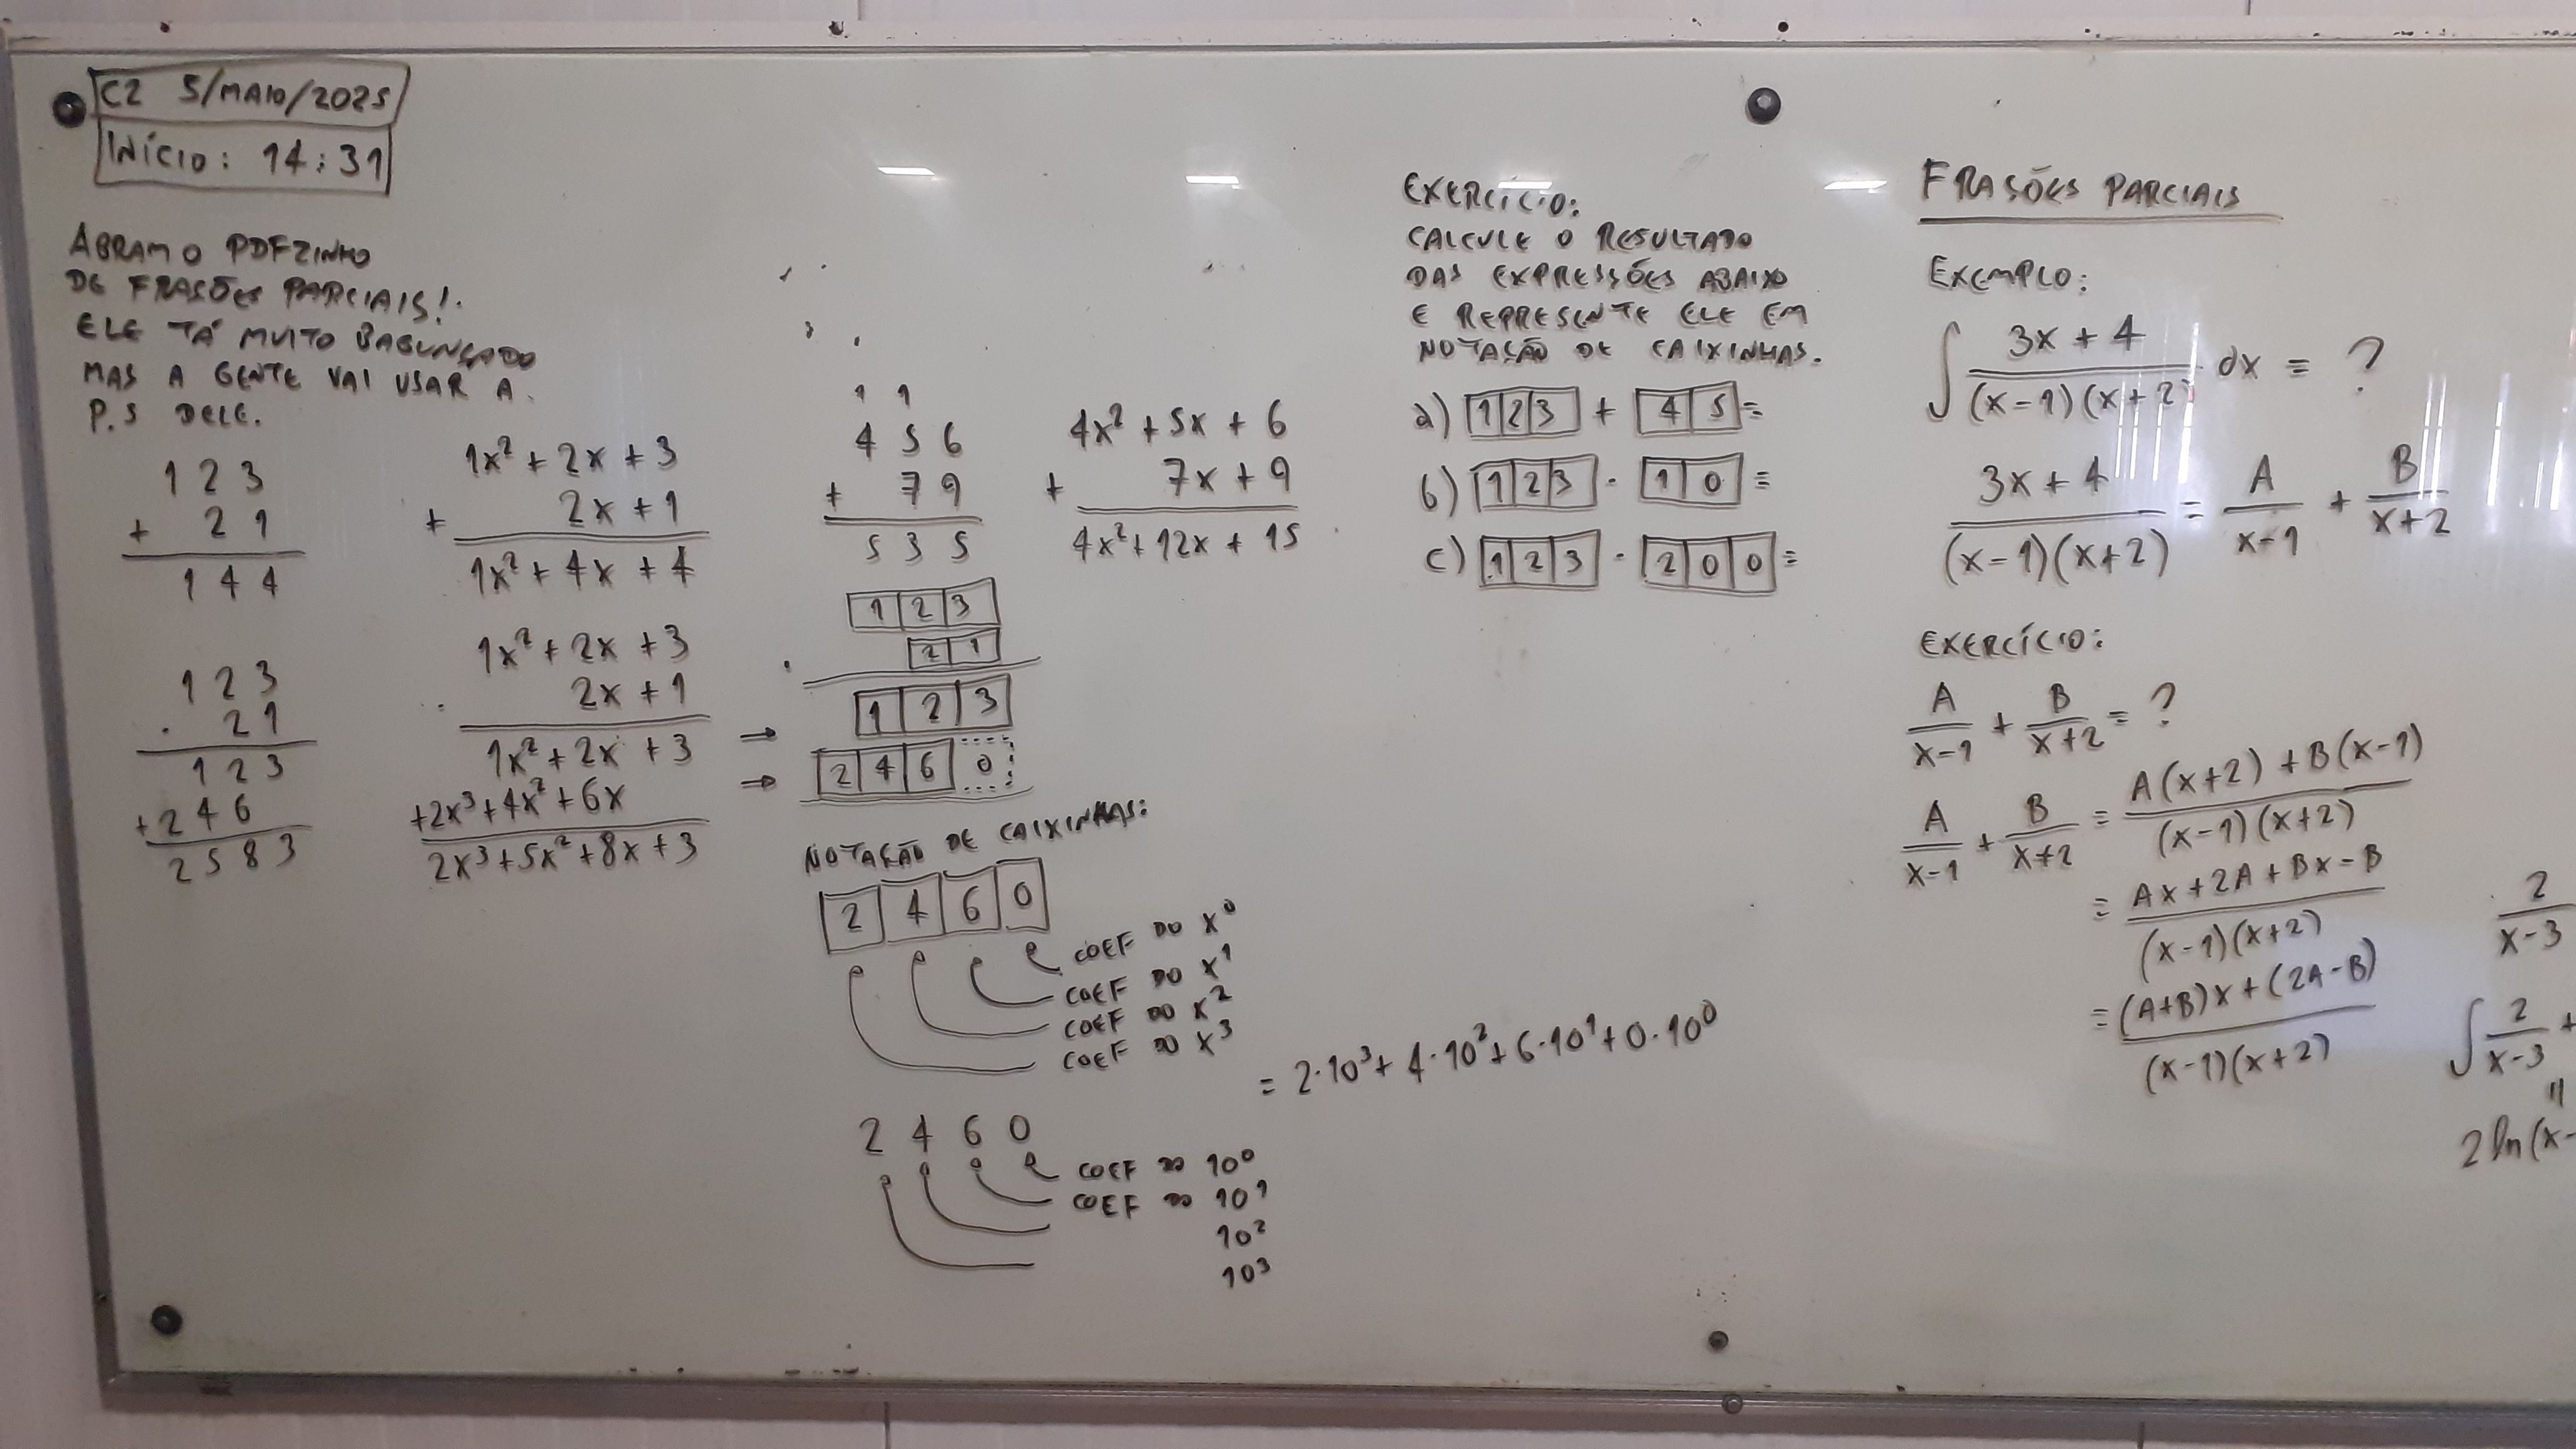 C2 5/MAIO/2025
INÍCIO: 14:31
ABRAM O PDFZINHO
DE FRAÇÕES PARCIAIS!
ELE TÁ MUITO BAGUNÇADO
MAS A GENTE VAI USAR A
P.5 DELE.
1 2 3
+ 2 1
1 4 4
1x² + 2x + 3
+ 2x + 1
1x² + 4x + 4
1 2 3
· 2 1
1 2 3
+ 2 4 6
2 5 8 3
1x² + 2x + 3
· 2x + 1
1x² + 2x + 3 →
+2x³ + 4x² + 6x →
2x³ + 5x² + 8x + 3
1 1
4 5 6
+ 7 9
5 3 5
4x² + 5x + 6
+ 7x + 9
4x² + 12x + 15
1 2 3
· 2 1
1 2 3
2 4 6 0
NOTAÇÃO DE CAIXINHAS:
2 4 6 0
COEF DO x⁰
COEF DO x¹
COEF DO x²
COEF DO x³
2 4 6 0
= 2·10³ + 4·10² + 6·10¹ + 0·10⁰
COEF DO 10⁰
COEF DO 10¹
10²
10³
EXERCÍCIO:
CALCULE O RESULTADO
DAS EXPRESSÕES ABAIXO
E REPRESENTE ELE EM
NOTAÇÃO DE CAIXINHAS.
a) 1 2 3 + 4 5 =
b) 1 2 3 · 1 0 =
c) 1 2 3 · 2 0 0 =
FRAÇÕES PARCIAIS
EXEMPLO:
∫ (3x + 4)/((x-1)(x+2)) dx = ?
(3x + 4)/((x-1)(x+2)) = A/(x-1) + B/(x+2)
EXERCÍCIO:
A/(x-1) + B/(x+2) = ?
A/(x-1) + B/(x+2) = (A(x+2) + B(x-1))/((x-1)(x+2))
= (Ax + 2A + Bx - B)/((x-1)(x+2))
= ((A+B)x + (2A-B))/((x-1)(x+2))
2/(x-3)
∫ 2/(x-3) +
||
2 ln(x-